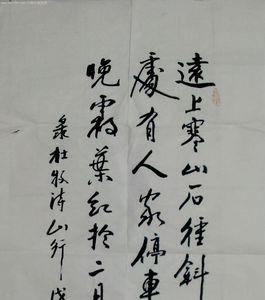 遠上寒山石徑斜
處有人家停車
晚霜葉紅於二月
錄杜牧詩山行